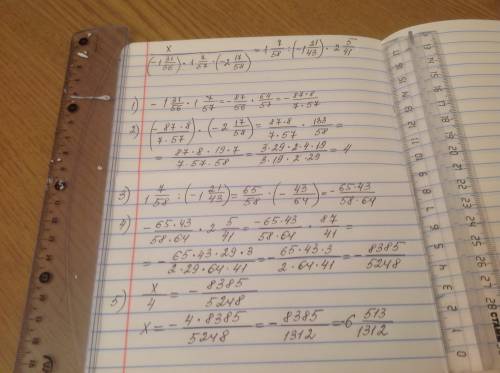 x / ((-1 31/56) · 1 7/57 · (-2 17/58)) = 1 7/58 : (-1 21/43) · 2 5/41
1) -1 31/56 · 1 7/57 = -87/56 · 64/57 = -87·8/7·57
2) (-87·8/7·57) · (-2 17/58) = 87·8/7·57 · 133/58 =
= 87·8·19·7/7·57·58 = 3·29·2·4·19/3·19·2·29 = 4
3) 1 7/58 : (-1 21/43) = 65/58 · (-43/64) = -65·43/58·64
4) -65·43/58·64 · 2 5/41 = -65·43/58·64 · 87/41 =
= -65·43·29·3/2·29·64·41 = -65·43·3/2·64·41 = -8385/5248
5) x/4 = -8385/5248
x = -4·8385/5248 = -8385/1312 = -6 513/1312